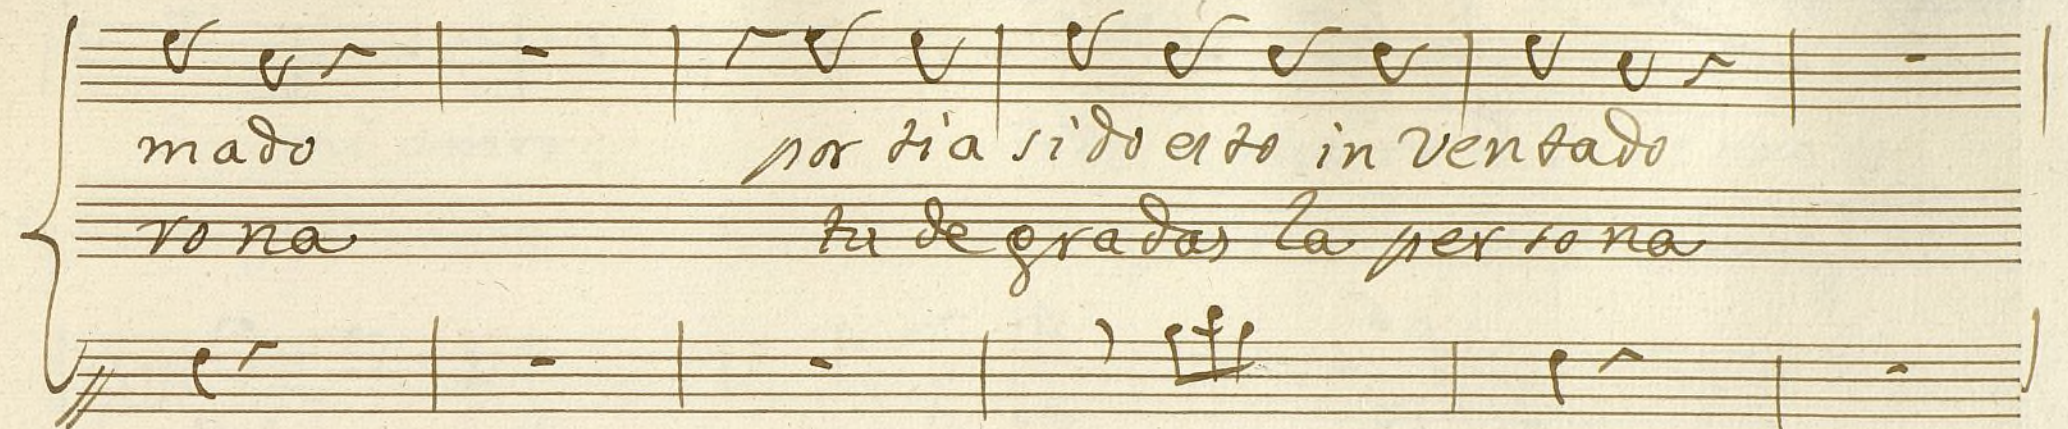 mado por tia sido esto in ventado
rona tu degradas la persona